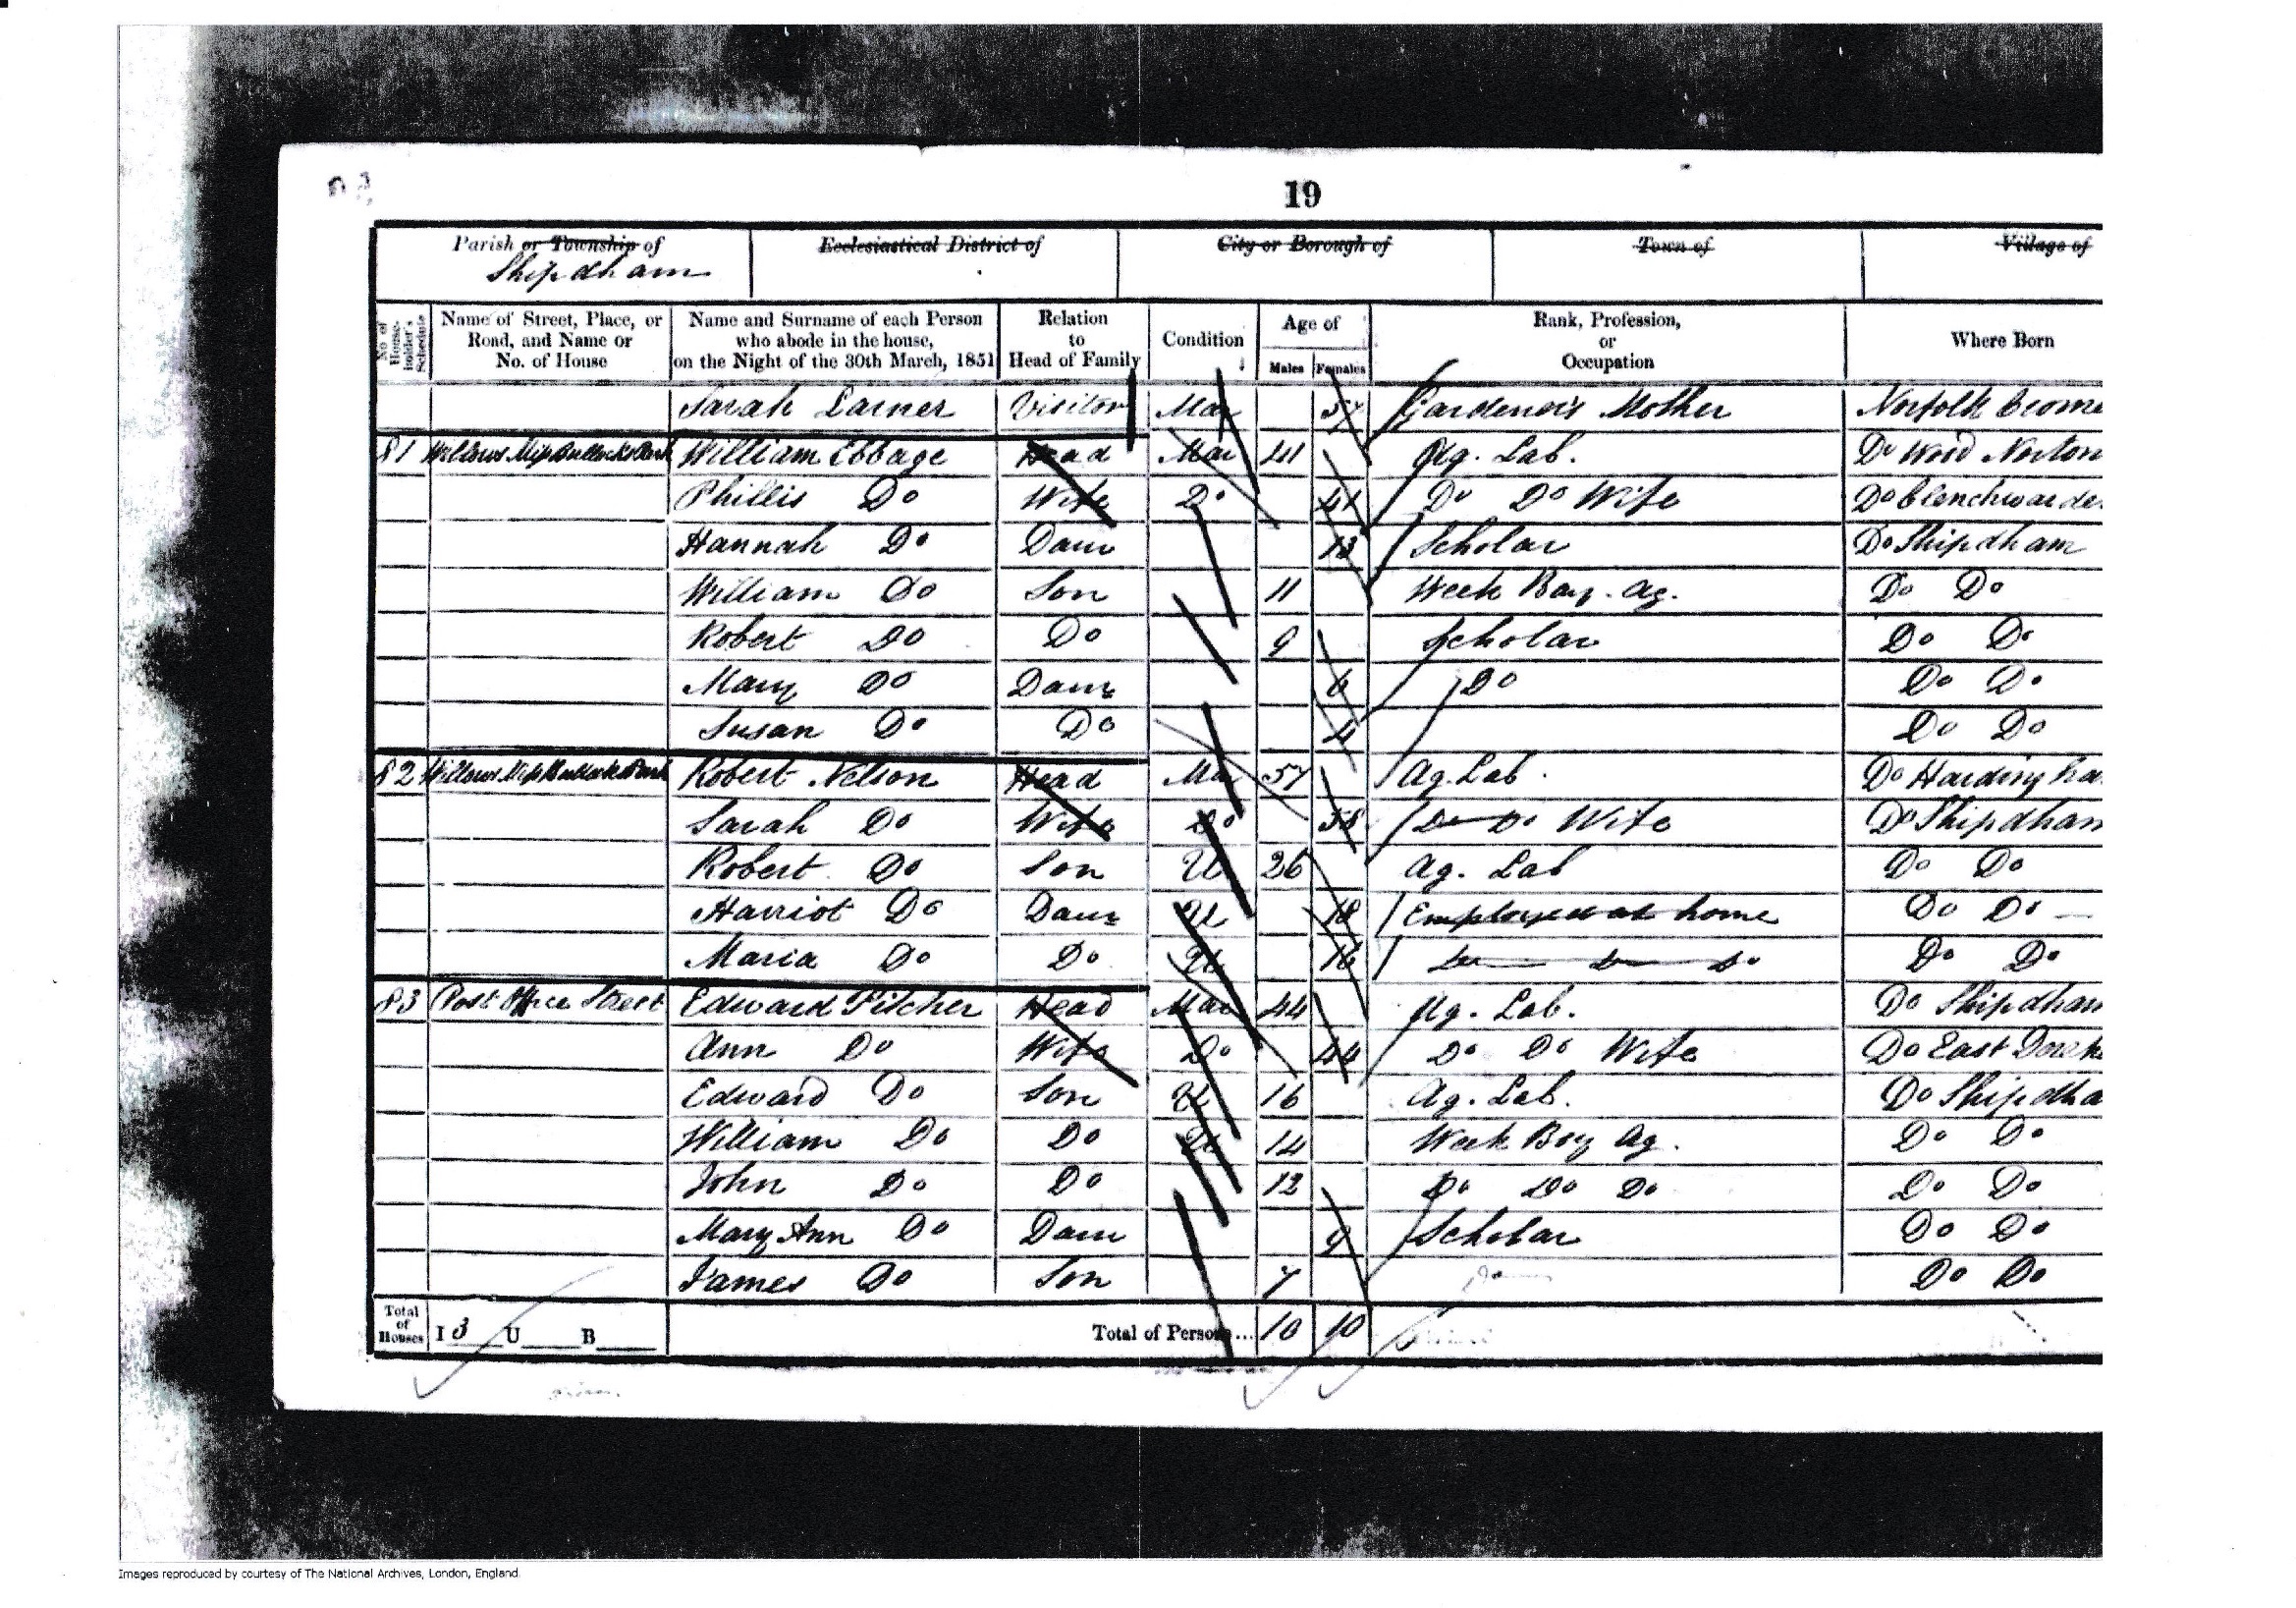 19
Parish or Township of
Shipdham
Ecclesiastical District of
City or Borough of
Town of
Village of
No of House-holder's Schedule
Name of Street, Place, or Road, and Name or No. of House
Name and Surname of each Person who abode in the house, on the Night of the 30th March, 1851
Relation to Head of Family
Condition
Age of
Males Females
Rank, Profession, or Occupation
Where Born
Sarah Larner Visitor Mar 57 Gardener's Mother Norfolk
81 William Ebbage Head Mar 41 Ag. Lab. Do Wood Norton
Phillis Do Wife Do 41 Do Do Wife Do
Hannah Do Daur 13 Scholar Do Shipdham
William Do Son 11 Week Boy. Ag. Do Do
Robert Do Do 9 Scholar Do Do
Mary Do Daur 6 Do Do Do
Susan Do Do 4 Do Do
82 Robert Nelson Head Mar 57 Ag. Lab. Do Hardingha
Sarah Do Wife Do 58 Do Do Wife Do Shipdham
Robert Do Son U 26 Ag. Lab Do Do
Harriot Do Daur U 18 Employed at home Do Do
Maria Do Do U 16 Do Do Do Do Do
83 Post Office Street Edward Pitcher Head Mar 44 Ag. Lab. Do Shipdham
Ann Do Wife Do 44 Do Do Wife Do East Dereh
Edward Do Son U 16 Ag. Lab. Do Shipdha
William Do Do U 14 Week Boy Ag. Do Do
John Do Do 12 Do Do Do Do Do
Mary Ann Do Daur 9 Scholar Do Do
James Do Son 7 Do Do
Total of Houses I 3 U B Total of Persons... 10 10
Images reproduced by courtesy of The National Archives, London, England.